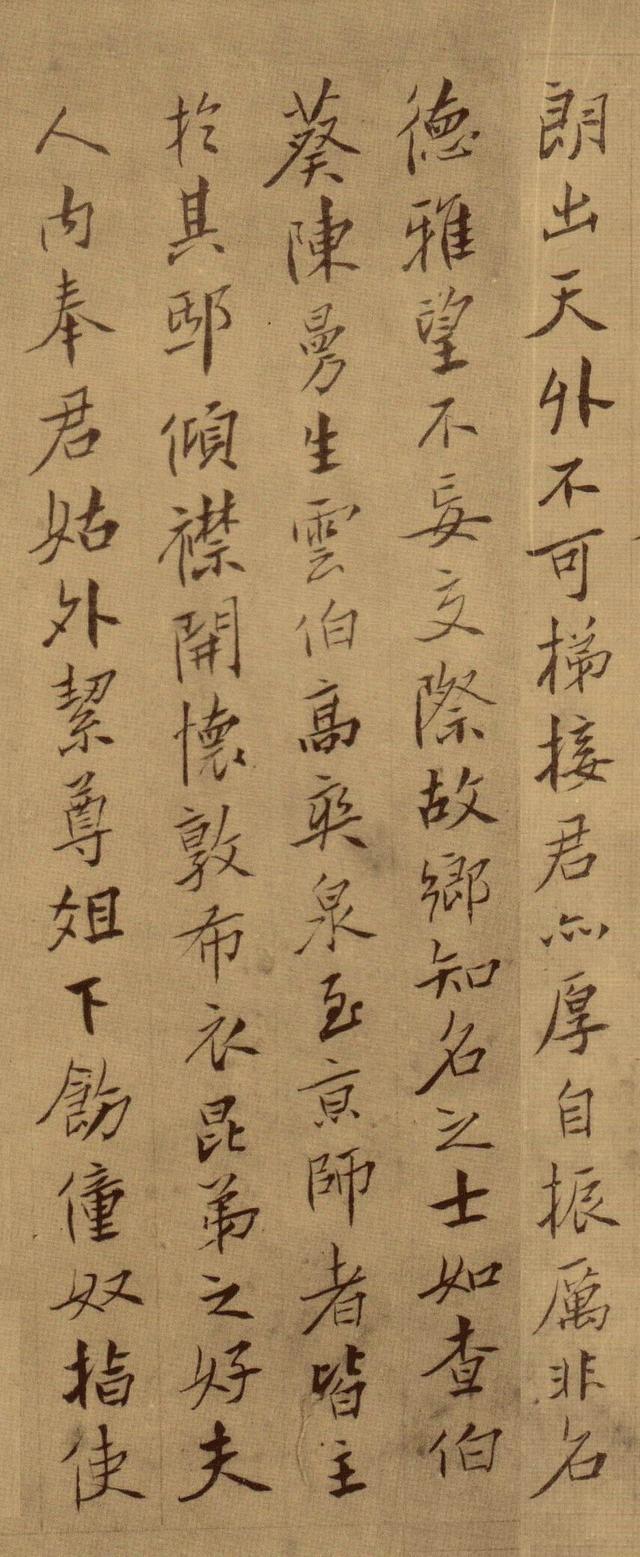 朗出天外不可梯接君亦厚自振厲非名
德雅望不妄交際故鄉知名之士如查伯
葵陳曼生雲伯高爽泉至京師者皆主
於其邸傾襟開懷敦布衣昆弟之好夫
人內奉君姑外絜尊姐下飭僮奴指使